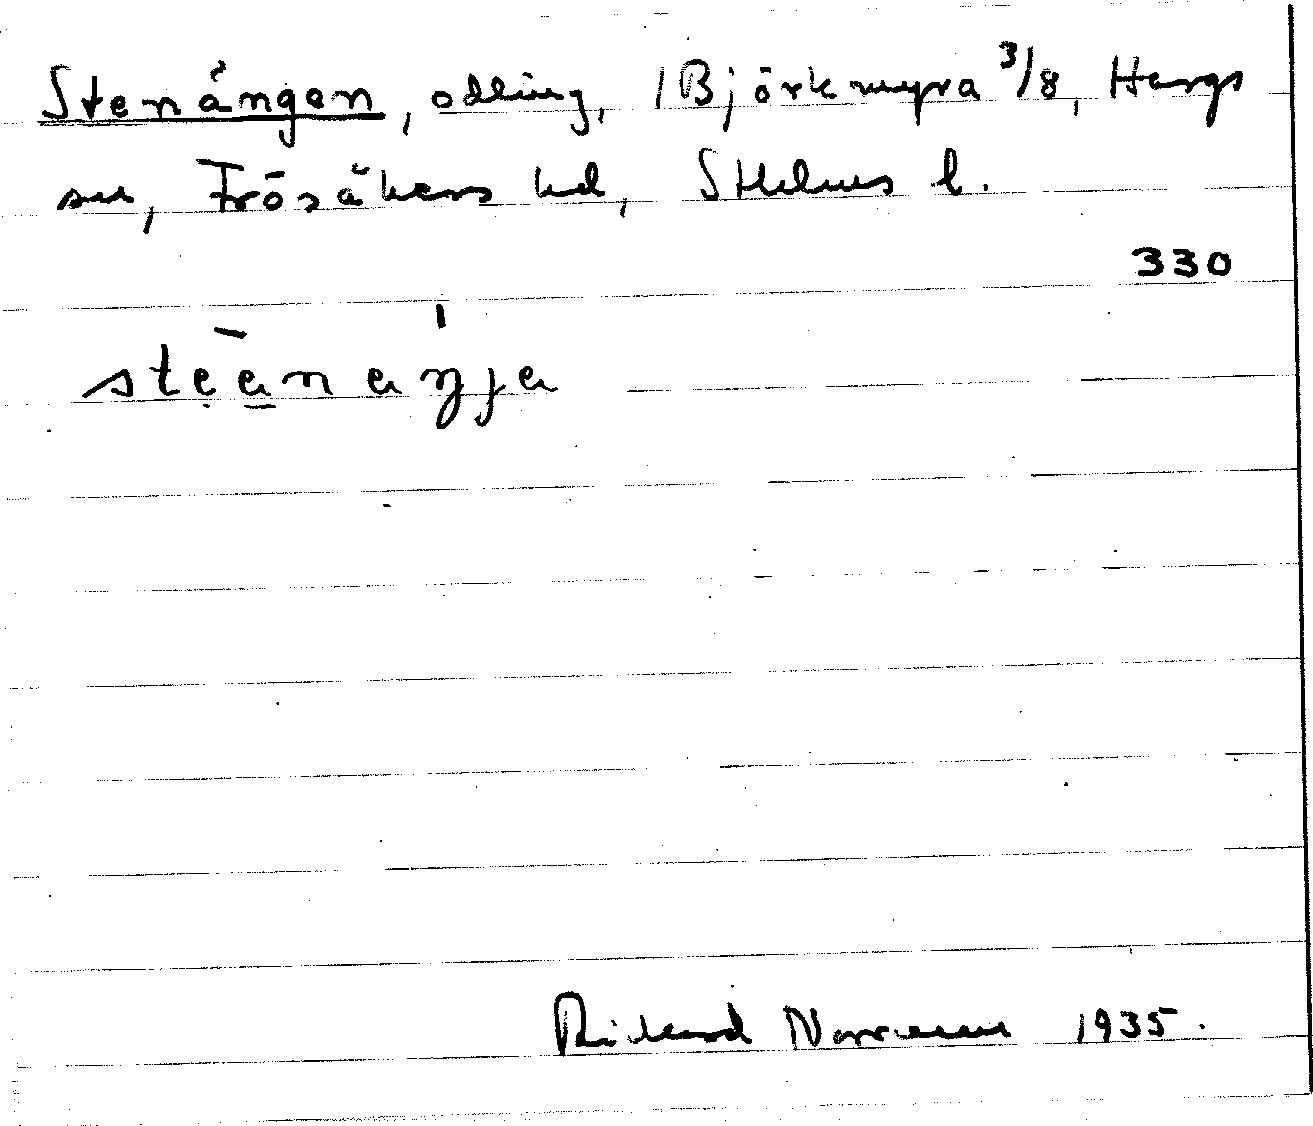 Stenängen, odling, 1 Björkmyra 3/8, Hargs
sn, Frösåkers hd, Sthlms l.
330
Rickard Norrman 1935.